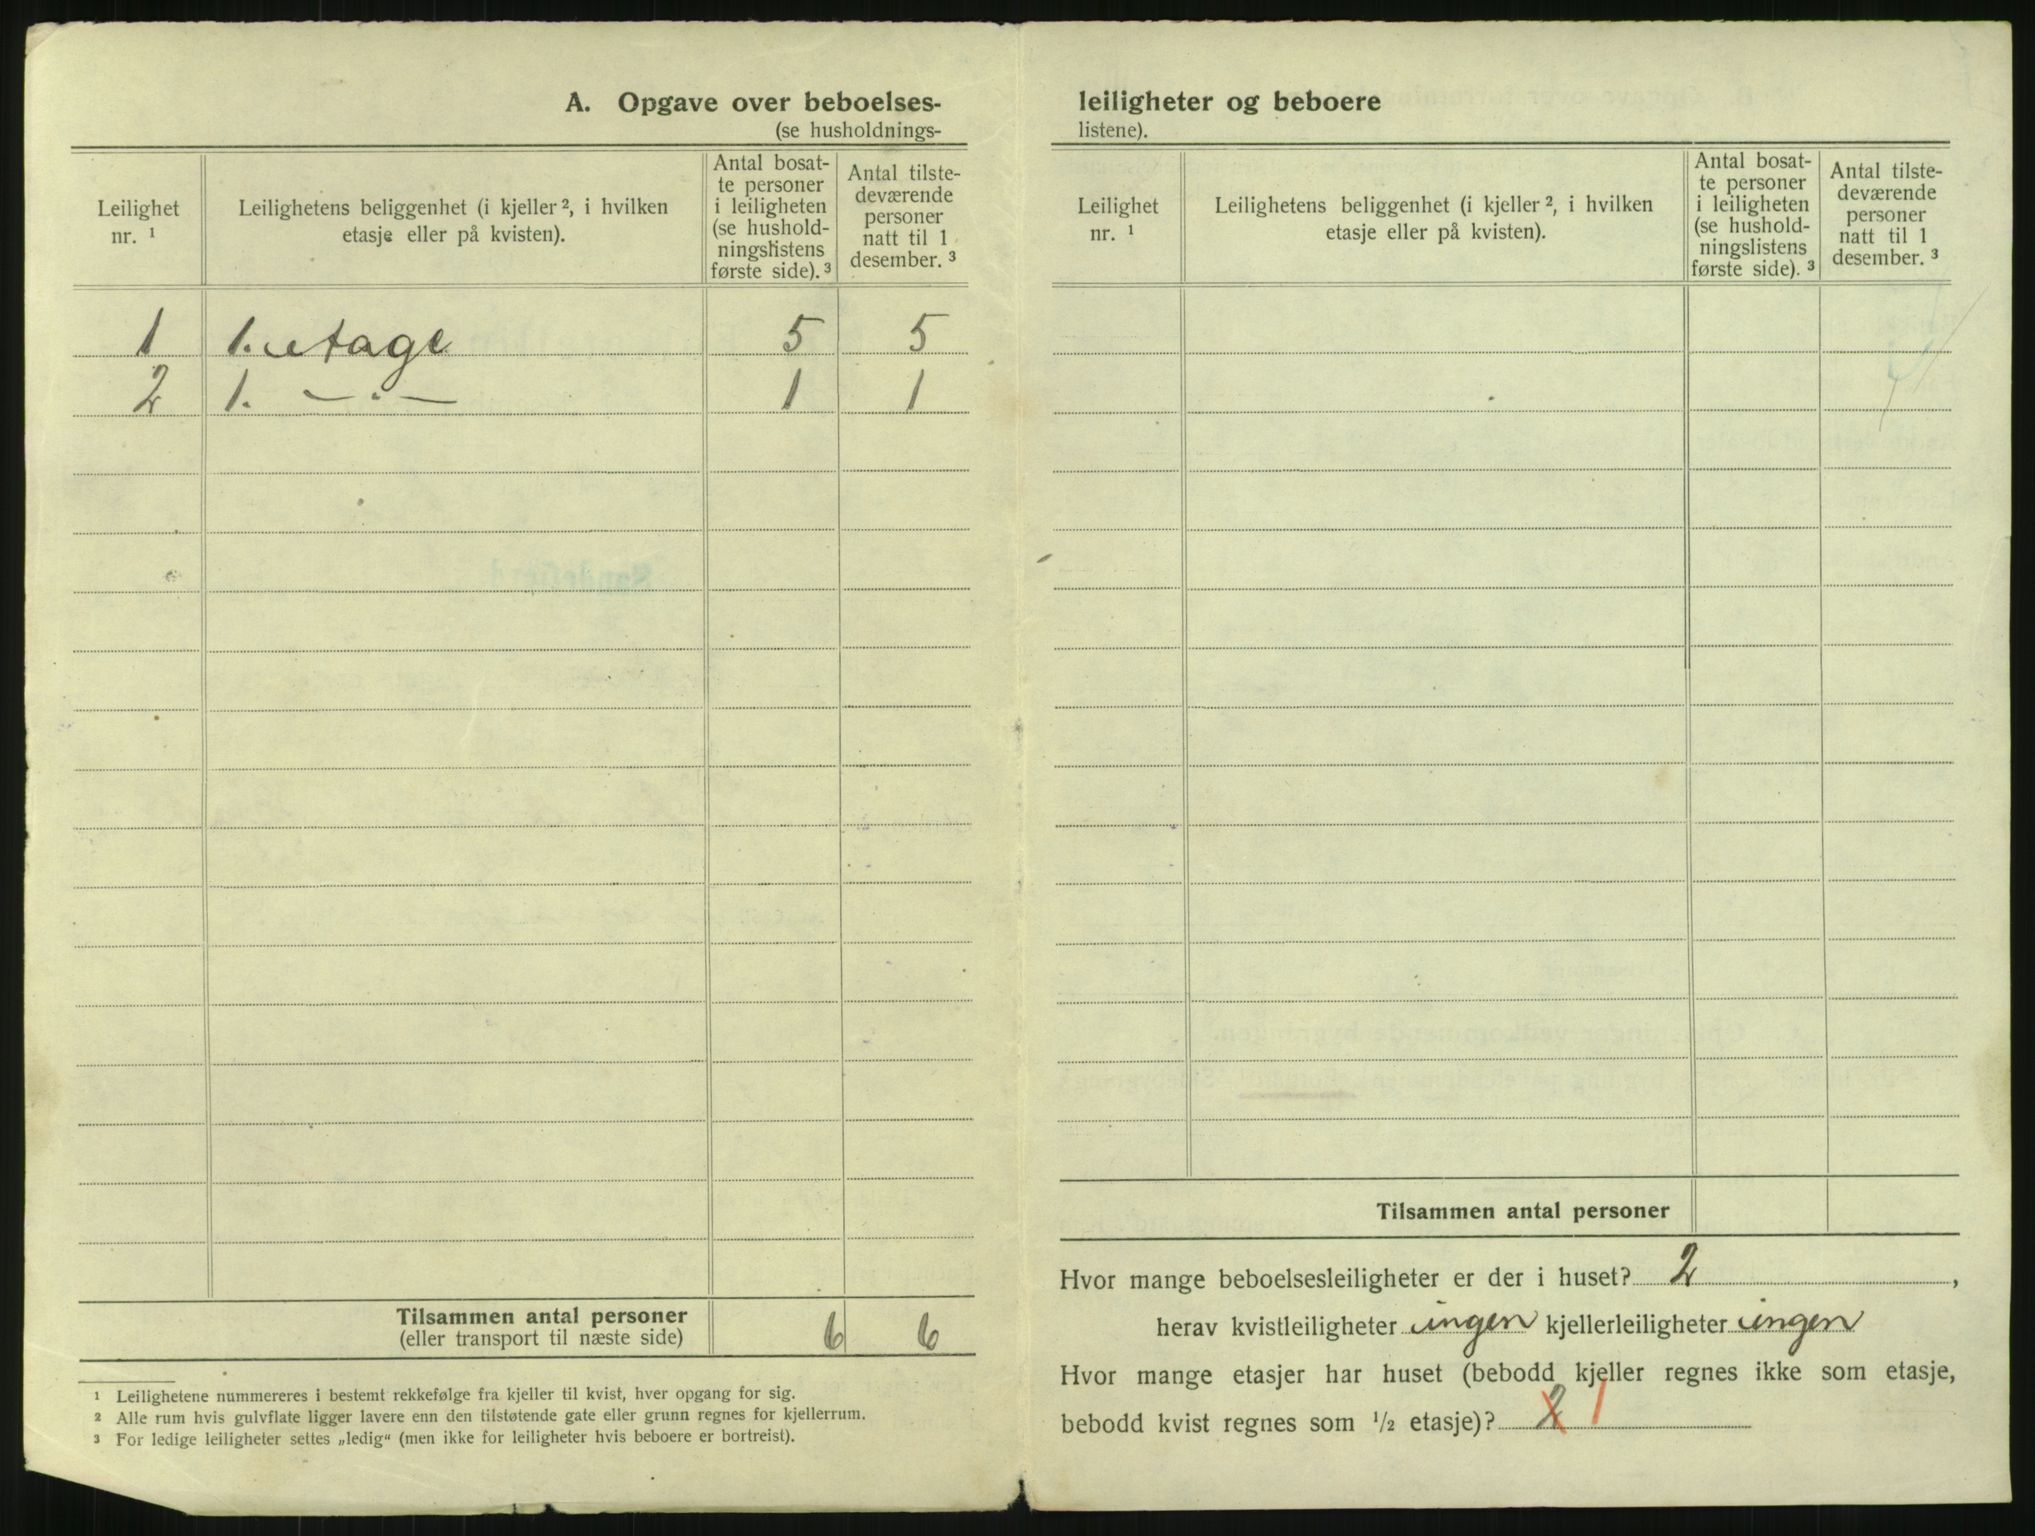 A. Opgave over beboelses-
(se husholdnings-
Leilighet nr. ¹
Leilighetens beliggenhet (i kjeller ², i hvilken
etasje eller på kvisten).
Antal bosat-
te personer
i leiligheten
(se hushold-
ningslistens
første side). ³
Antal tilste-
deværende
personer
natt til 1
desember. ³
1 1. etage 5 5
2 1. — " — 1 1
Tilsammen antal personer
(eller transport til næste side) 6 6
¹ Leilighetene nummereres i bestemt rekkefølge fra kjeller til kvist, hver opgang for sig.
² Alle rum hvis gulvflate ligger lavere enn den tilstøtende gate eller grunn regnes for kjellerrum.
³ For ledige leiligheter settes „ledig“ (men ikke for leiligheter hvis beboere er bortreist).
leiligheter og beboere
listene).
Leilighet nr. ¹
Leilighetens beliggenhet (i kjeller ², i hvilken
etasje eller på kvisten).
Antal bosat-
te personer
i leiligheten
(se hushold-
ningslistens
første side). ³
Antal tilste-
deværende
personer
natt til 1
desember. ³
Tilsammen antal personer
Hvor mange beboelsesleiligheter er der i huset? 2,
herav kvistleiligheter ingen kjellerleiligheter ingen
Hvor mange etasjer har huset (bebodd kjeller regnes ikke som etasje,
bebodd kvist regnes som ½ etasje)? 2 1